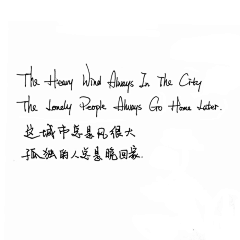 The Heavy Wind Always In The City
The Lonely People Always Go Home Later.
这城市总是风很大
孤独的人总是晚回家.